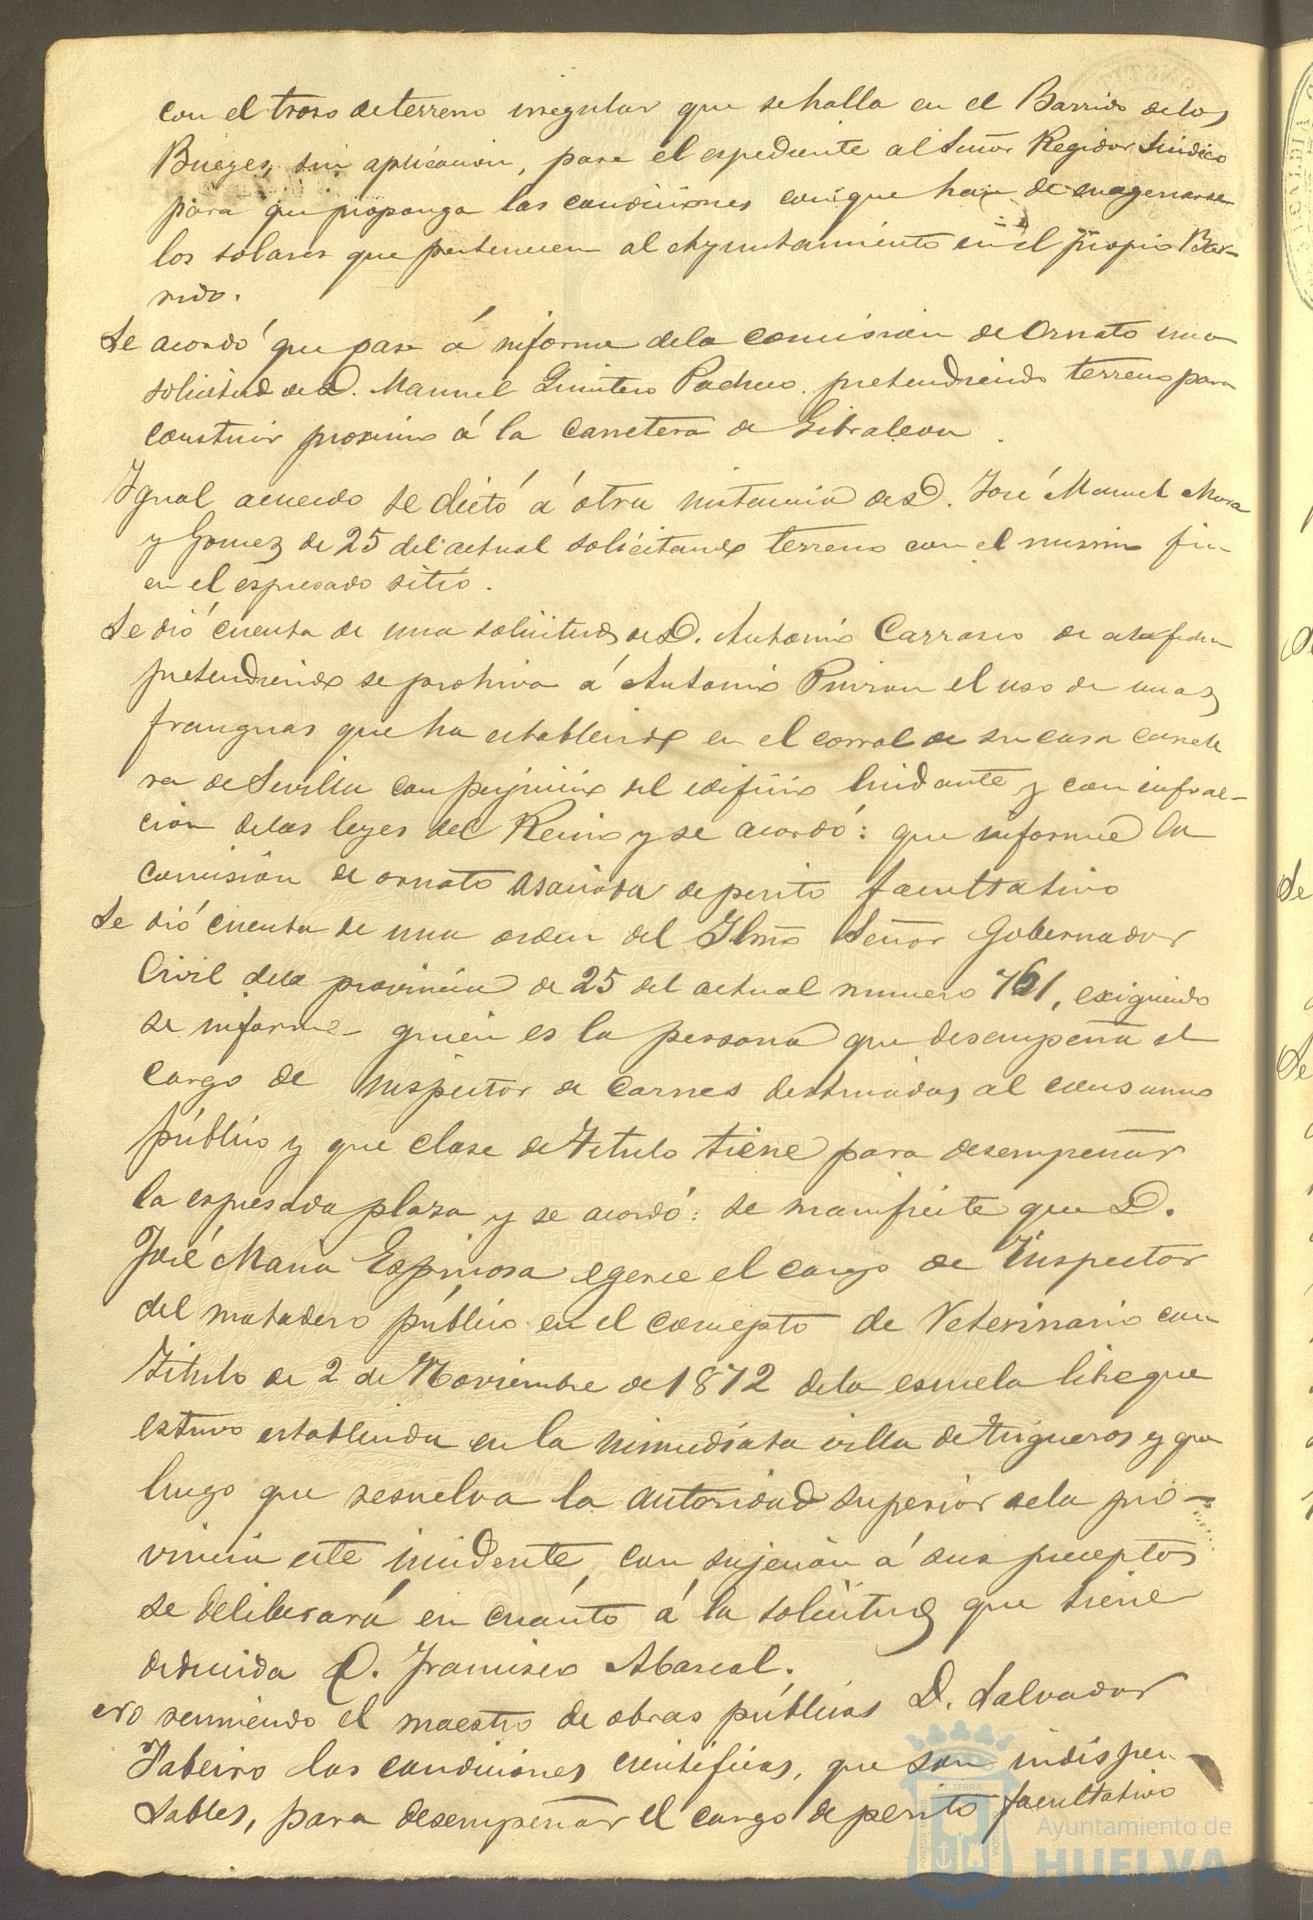 con el troso de terreno irregular que se halla en el Barrido de los
Bueyes, sin aplicacion, pase el espediente al Señor Regidor Sindico
para que proponga las condiciones con que han de enagenarse
los solares que pertenecen al Ayuntamiento en el propio Bar-
rido.
Se acordó que pase á informe de la comision de Ornato una
solicitud de D. Manuel Quintero Pacheco pretendiendo terreno para
construir proximo á la Carretera de Gibraleon.
Igual acuerdo se dictó á otra instancia de D. José Manuel Mora
y Gomez de 25 del actual solicitando terreno con el mismo fin
en el espresado sitio.
Se dió cuenta de una solicitud de D. Antonio Carrasco de
pretendiendo se prohiva á Antonio el uso de unas
franguas que ha establecido en el corral de su casa carrete
ra de Sevilla con perjuicio del edificio lindante y con infrac-
cion de las leyes del Reino y se acordó: que informe la
comisión de ornato asociada de perito facultativo
Se dió cuenta de una orden del Ilmo Señor Gobernador
Civil de la provincia de 25 del actual numero 761, exigiendo
se informe quien es la persona que desempeña el
cargo de inspector de carnes destinadas al consumo
público y que clase de titulo tiene para desempeñar
la espresada plaza y se acordó: se manifieste que D.
José Maria Espinosa egerce el cargo de Inspector
del matadero público en el concepto de Veterinario con
Titulo de 2 de Noviembre de 1872 de la escuela libre que
estuvo establecida en la inmediata villa de Trigueros y que
luego que resuelva la autoridad superior de la pro-
vincia este incidente, con sujecion á sus preceptos
se deliberará en cuánto á la solicitud que tiene
deducida D. Francisco Abascal.
reuniendo el maestro de obras públicas D. Salvador
las condiciones cientificas, que son indispen-
sables, para desempeñar el cargo de perito facultativo
Ayuntamiento de
HUELVA